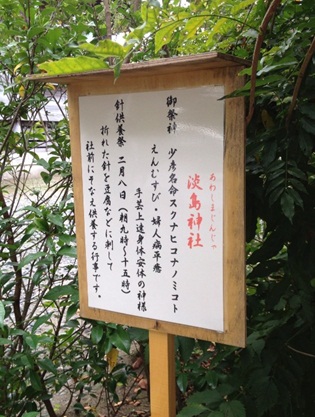 あわしまじんじゃ
淡島神社
御祭神 少彦名命スクナヒコナノミコト
えんむすび・婦人病平癒
手芸上達身体安体の神様
針供養祭 二月八日(朝九時～十五時)
折れた針を豆腐などに刺して
社前にそなえ供養する行事です。